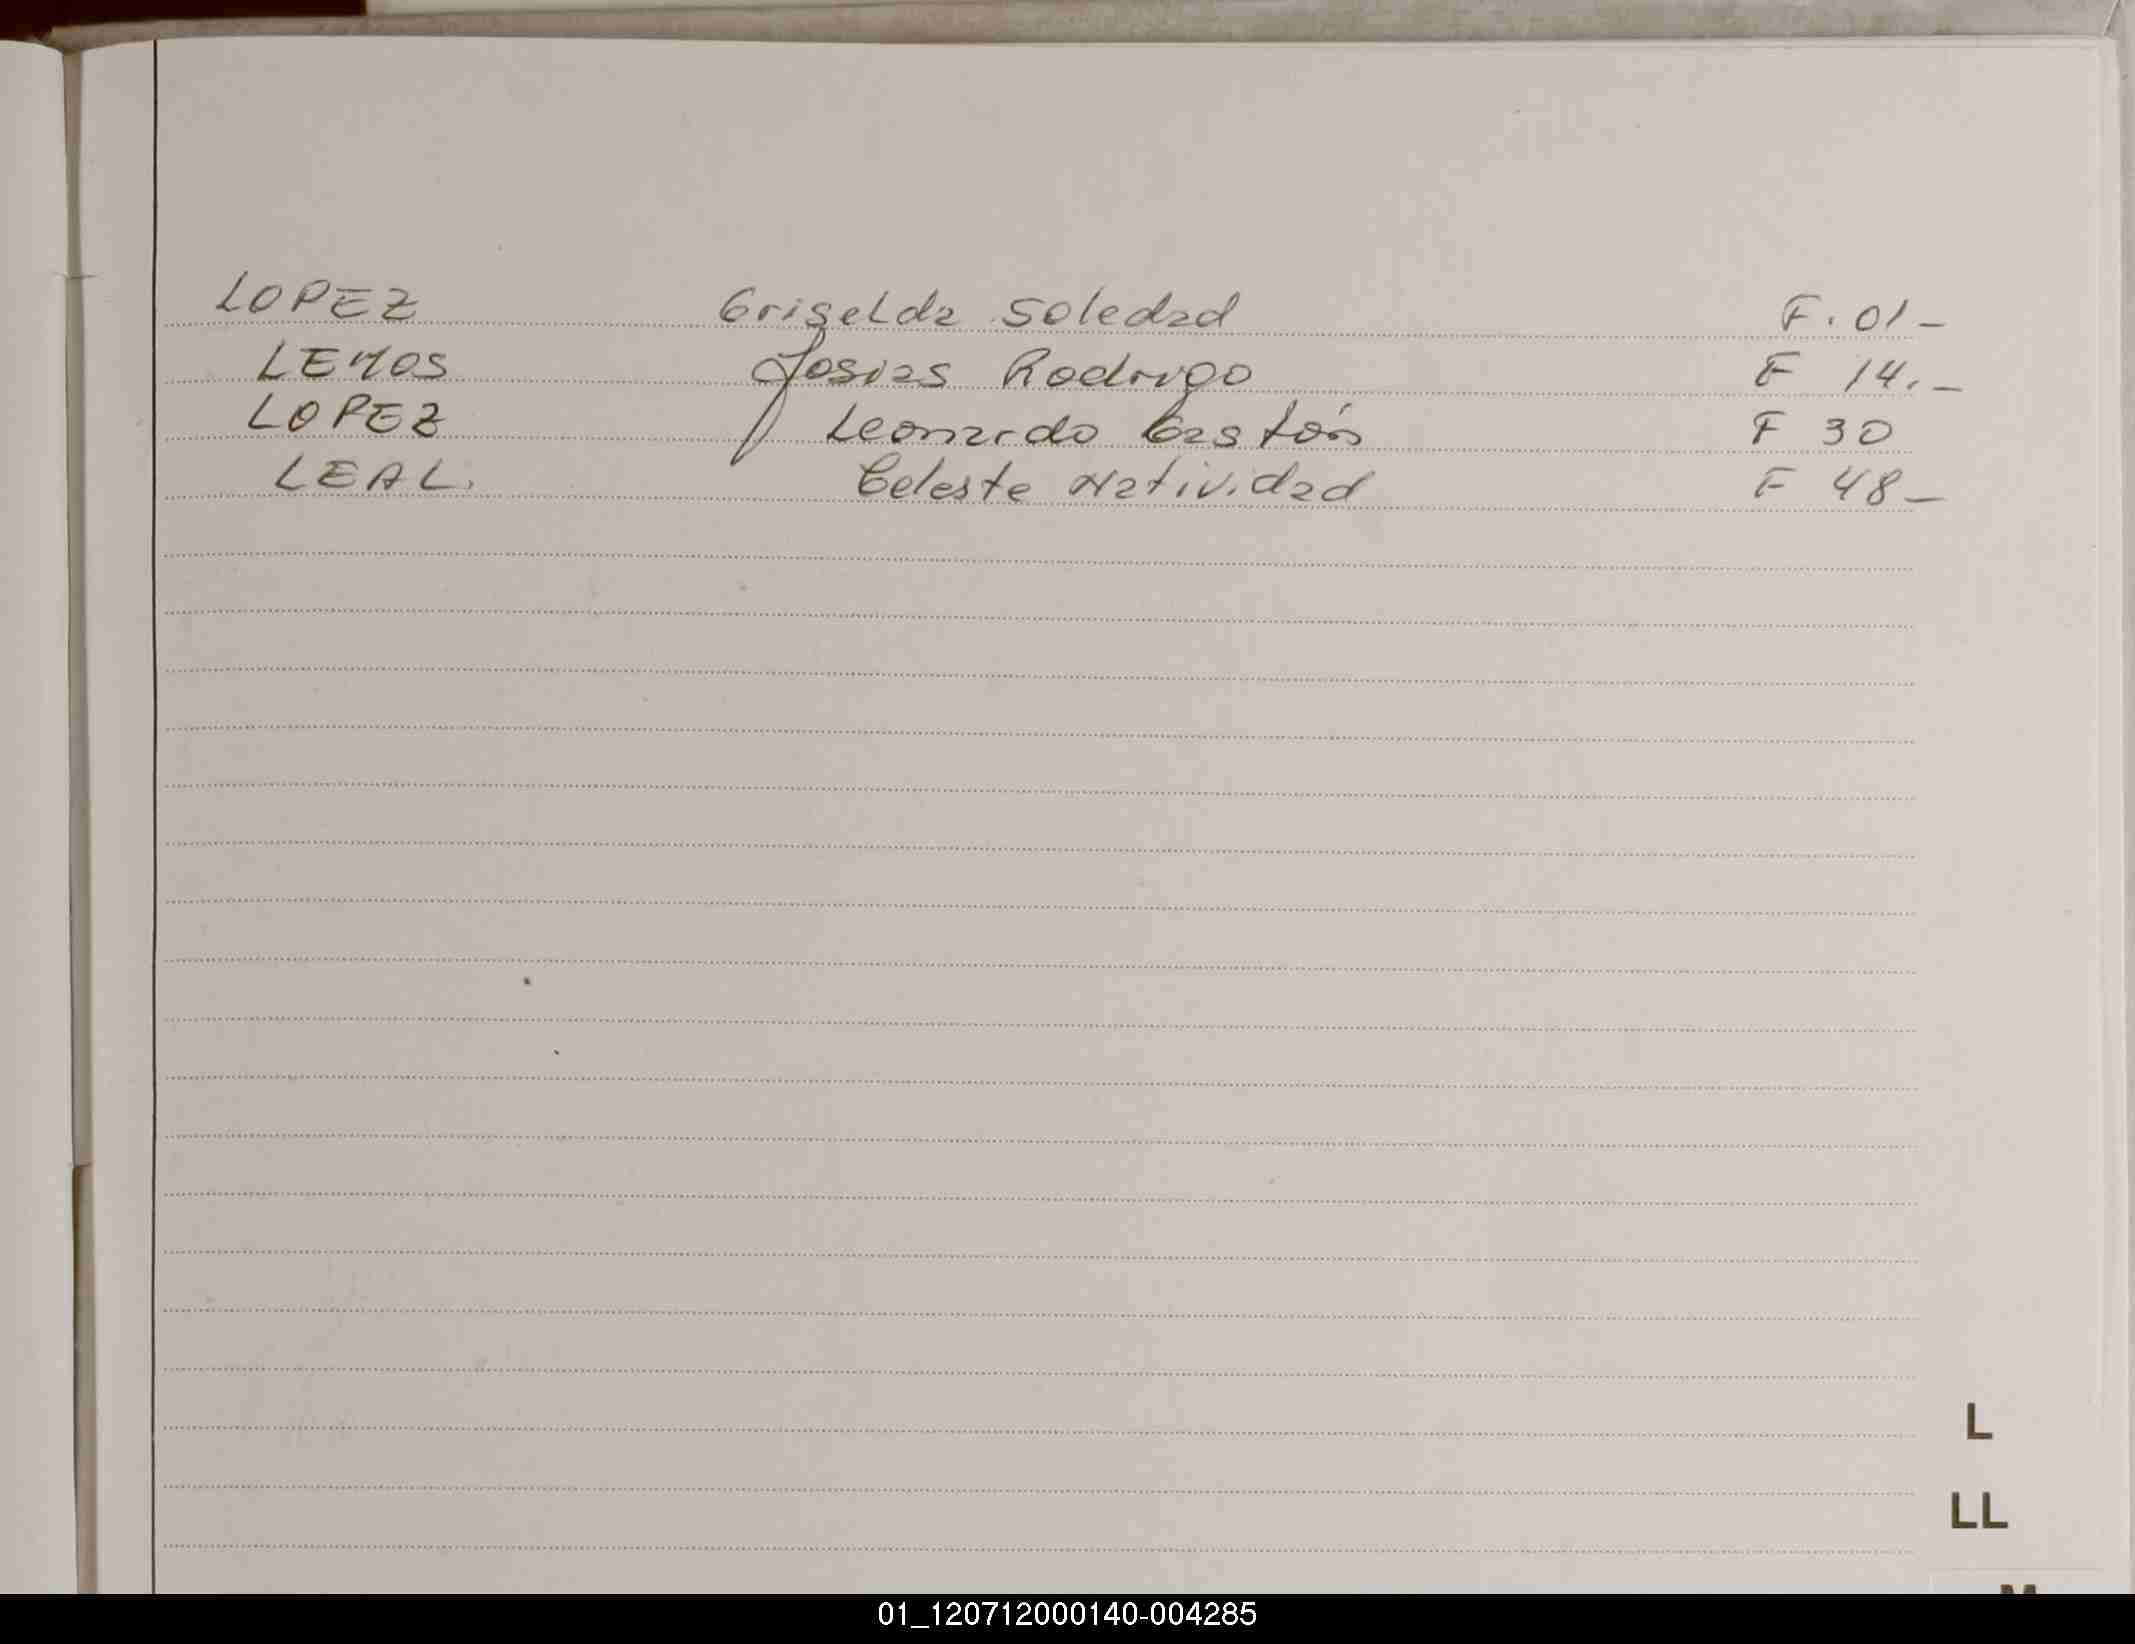 LOPEZ Griselda Soledad F. 01-
LEMOS Josias Rodrigo F 14.-
LOPEZ Leonardo Gastón F 30
LEAL. Celeste Natividad F 48-
L
LL
M
01_120712000140-004285